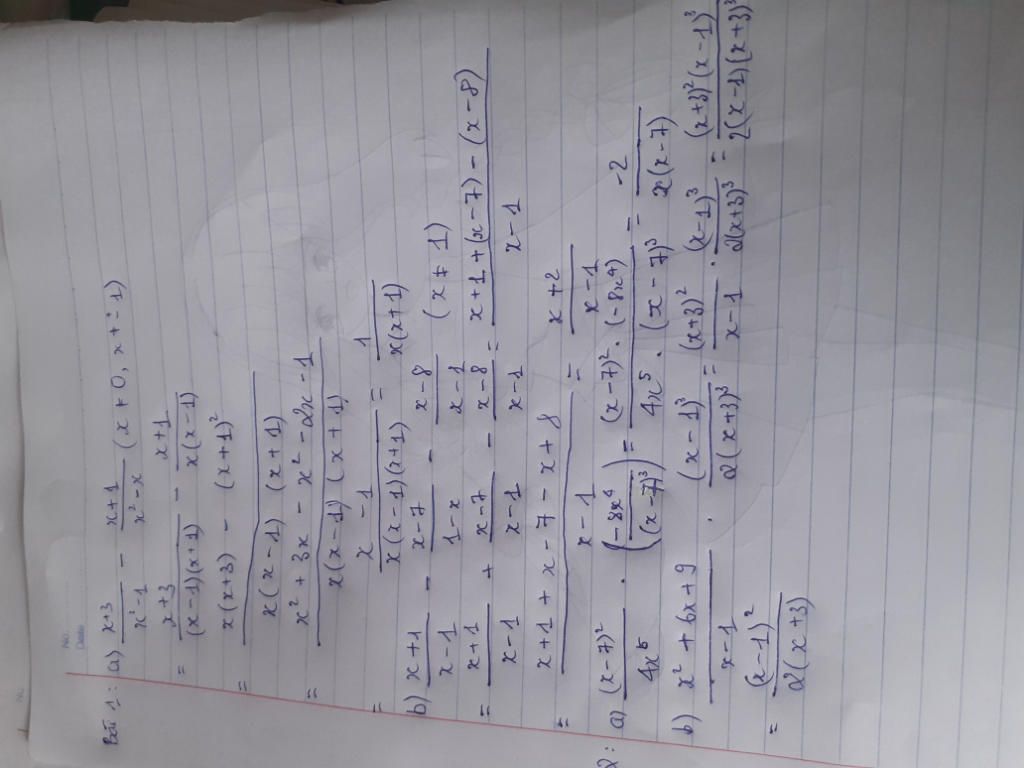 No.
Date
Bài 1: a) (x+3)/(x²-1) - (x+1)/(x²-x) (x ≠ 0, x ≠ ±1)
= (x+3)/((x-1)(x+1)) - (x+1)/(x(x-1))
= (x(x+3) - (x+1)²)/(x(x-1)(x+1))
= (x²+3x - x²-2x-1)/(x(x-1)(x+1))
= (x-1)/(x(x-1)(x+1)) = 1/(x(x+1))
b) (x+1)/(x-1) - (x-7)/(1-x) - (x-8)/(x-1) (x ≠ 1)
= (x+1)/(x-1) + (x-7)/(x-1) - (x-8)/(x-1) = (x+1+(x-7)-(x-8))/(x-1)
= (x+1+x-7-x+8)/(x-1) = (x+2)/(x-1)
2: a) (x-7)²/(4x⁵) . (-8x⁴/(x-7)³) = ((x-7)².(-8x⁴))/(4x⁵.(x-7)³) = -2/(x(x-7))
b) (x²+6x+9)/(x-1) . (x-1)³/(2(x+3)³) = (x+3)²/(x-1) . (x-1)³/(2(x+3)³) = ((x+3)²(x-1)³)/(2(x-1)(x+3)³)
= (x-1)²/(2(x+3))